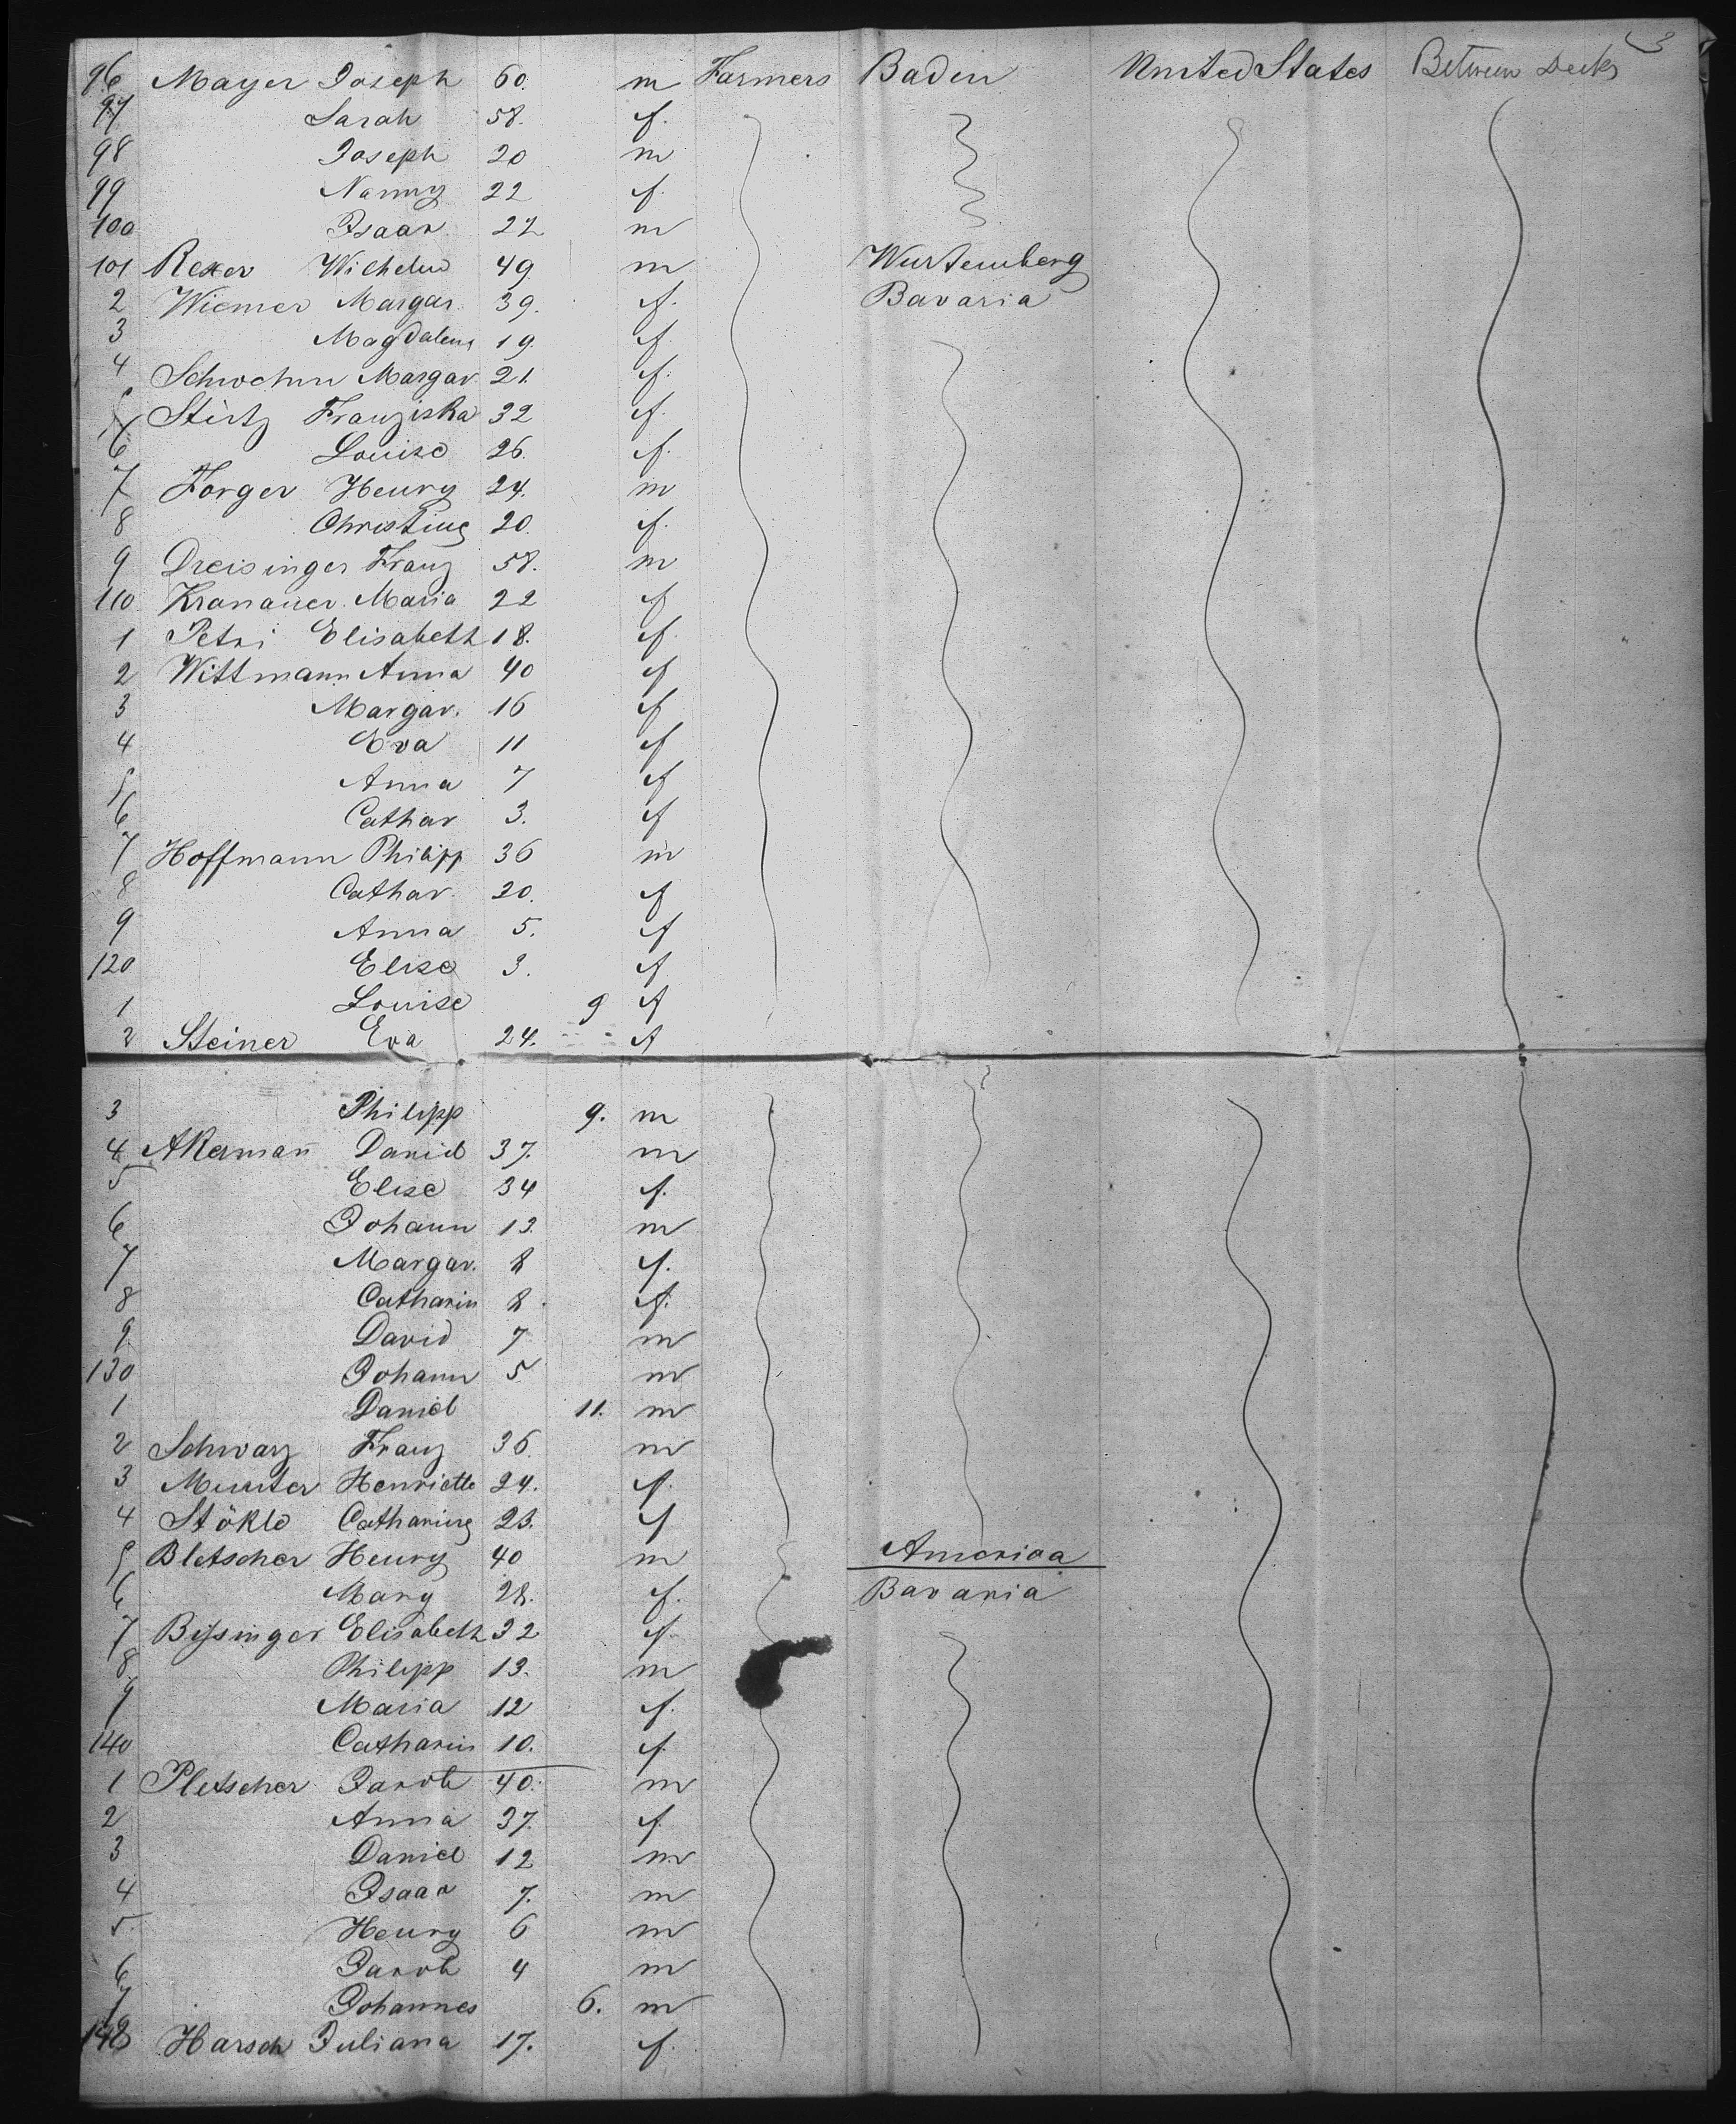 3
96 Mayer Joseph 60. m Farmers Baden United States Between Decks
97 Sarah 58. f.
98 Joseph 20 m
99 Nanny 22 f.
100 Isaac 22 m
101 Rexer Wilhelm 49 m Wurtemberg
2 Wiemer Margar. 39. f. Bavaria
3 Magdalena 19. f.
4 Schwehm Margar. 21. f.
5 Stirtz Franziska 32 f.
6 Louise 26. f.
7 Forger Henry 24. m
8 Christine 20. f.
9 Dreisinger Franz 58. m
110 Kranauer Maria 22 f
1 Petri Elisabeth 18. f.
2 Wittmann Anna 40 f
3 Margar. 16 f
4 Eva 11 f
5 Anna 7 f
6 Cathar 3. f
7 Hoffmann Philipp 36 m
8 Cathar. 30. f
9 Anna 5. f
120 Elise 3. f
1 Louise 9 f
2 Steiner Eva 24. f
3 Philipp 9. m
4 Akermañ Daniel 37. m
5 Elise 34 f.
6 Johann 13. m
7 Margar. 8 f.
8 Catharin 8. f.
9 David 7 m
130 Johann 5 m
1 Daniel 11. m
2 Schwarz Franz 36. m
3 Munter Henriette 24. f.
4 Stökle Catharine 23. f
5 Bletscher Henry 40 m America
6 Mary 28. f. Bavaria
7 Bissinger Elisabeth 32 f
8 Philipp 13. m
9 Maria 12 f.
140 Catharin 10. f.
1 Pletscher Jacob 40. m
2 Anna 37. f.
3 Daniel 12 m
4 Isaac 7. m
5. Henry 6 m
6 Jacob 4 m
7 Johannes 6. m
148 Harsch Juliana 17. f.